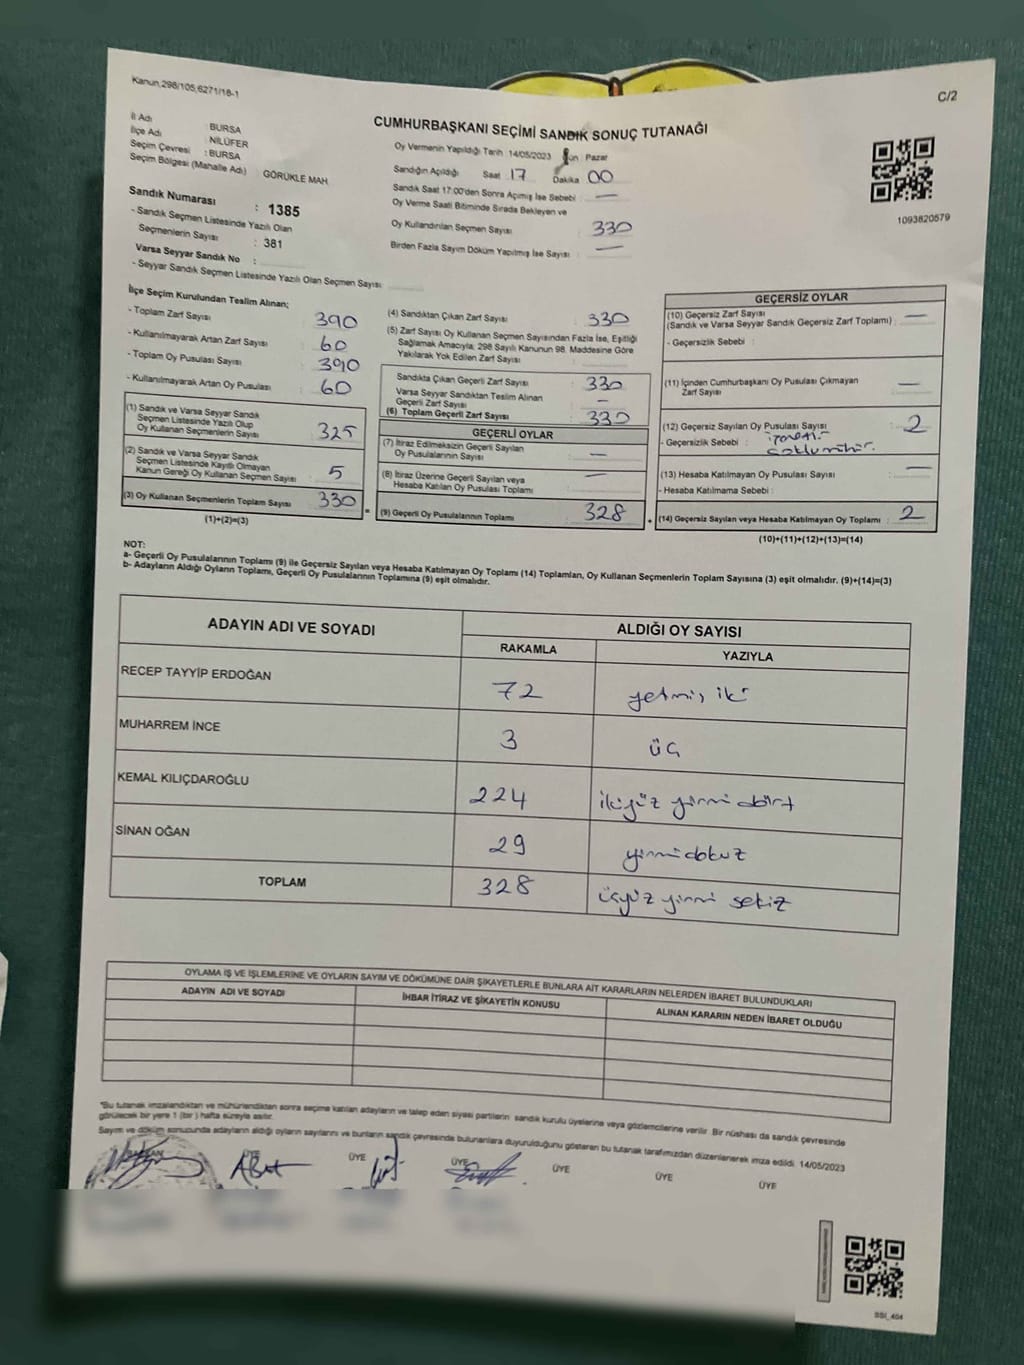 Kanun,298/105,6271/18-1
C/2
CUMHURBAŞKANI SEÇİMİ SANDIK SONUÇ TUTANAĞI
İl Adı : BURSA
İlçe Adı : NİLÜFER
Seçim Çevresi : BURSA
Seçim Bölgesi (Mahalle Adı) GÖRÜKLE MAH
Sandık Numarası : 1385
- Sandık Seçmen Listesinde Yazılı Olan
Seçmenlerin Sayısı : 381
Varsa Seyyar Sandık No :
- Seyyar Sandık Seçmen Listesinde Yazılı Olan Seçmen Sayısı
Oy Vermenin Yapıldığı Tarih 14/05/2023 Gün Pazar
Sandığın Açıldığı Saat 17 Dakika 00
Sandık Saat 17:00'den Sonra Açımış İse Sebebi : —
Oy Verme Saati Bitiminde Sırada Bekleyen ve
Oy Kullandırılan Seçmen Sayısı : 330
Birden Fazla Sayım Döküm Yapılmış İse Sayısı : —
1093820579
İlçe Seçim Kurulundan Teslim Alınan;
- Toplam Zarf Sayısı : 390
- Kullanılmayarak Artan Zarf Sayısı : 60
- Toplam Oy Pusulası Sayısı : 390
- Kullanılmayarak Artan Oy Pusulası : 60
(1) Sandık ve Varsa Seyyar Sandık
Seçmen Listesinde Yazılı Olup
Oy Kullanan Seçmenlerin Sayısı : 325
(2) Sandık ve Varsa Seyyar Sandık
Seçmen Listesinde Kayıtlı Olmayan
Kanun Gereği Oy Kullanan Seçmen Sayısı : 5
(3) Oy Kullanan Seçmenlerin Toplam Sayısı : 330
(1)+(2)=(3)
(4) Sandıktan Çıkan Zarf Sayısı : 330
(5) Zarf Sayısı Oy Kullanan Seçmen Sayısından Fazla İse, Eşitliği
Sağlamak Amacıyla, 298 Sayılı Kanunun 98. Maddesine Göre
Yakılarak Yok Edilen Zarf Sayısı :
Sandıkta Çıkan Geçerli Zarf Sayısı : 330
Varsa Seyyar Sandıktan Teslim Alınan
Geçerli Zarf Sayısı : —
(6) Toplam Geçerli Zarf Sayısı : 330
GEÇERLİ OYLAR
(7) İtiraz Edilmeksizin Geçerli Sayılan
Oy Pusulalarının Sayısı : —
(8) İtiraz Üzerine Geçerli Sayılan veya
Hesaba Katılan Oy Pusulası Toplamı : —
(9) Geçerli Oy Pusulalarının Toplamı : 328
GEÇERSİZ OYLAR
(10) Geçersiz Zarf Sayısı
(Sandık ve Varsa Seyyar Sandık Geçersiz Zarf Toplamı) : —
- Geçersizlik Sebebi :
(11) İçinden Cumhurbaşkanı Oy Pusulası Çıkmayan
Zarf Sayısı : —
(12) Geçersiz Sayılan Oy Pusulası Sayısı : 2
- Geçersizlik Sebebi :
(13) Hesaba Katılmayan Oy Pusulası Sayısı : —
- Hesaba Katılmama Sebebi :
(14) Geçersiz Sayılan veya Hesaba Katılmayan Oy Toplamı : 2
(10)+(11)+(12)+(13)=(14)
NOT:
a- Geçerli Oy Pusulalarının Toplamı (9) ile Geçersiz Sayılan veya Hesaba Katılmayan Oy Toplamı (14) Toplamları, Oy Kullanan Seçmenlerin Toplam Sayısına (3) eşit olmalıdır. (9)+(14)=(3)
b- Adayların Aldığı Oyların Toplamı, Geçerli Oy Pusulalarının Toplamına (9) eşit olmalıdır.
ADAYIN ADI VE SOYADI ALDIĞI OY SAYISI
RAKAMLA YAZIYLA
RECEP TAYYİP ERDOĞAN 72 yetmiş iki
MUHARREM İNCE 3 üç
KEMAL KILIÇDAROĞLU 224 ikiyüz yirmi dört
SİNAN OĞAN 29 yirmidokuz
TOPLAM 328 üçyüz yirmi sekiz
OYLAMA İŞ VE İŞLEMLERİNE VE OYLARIN SAYIM VE DÖKÜMÜNE DAİR ŞİKAYETLERLE BUNLARA AİT KARARLARIN NELERDEN İBARET BULUNDUKLARI
ADAYIN ADI VE SOYADI İHBAR İTİRAZ VE ŞİKAYETİN KONUSU ALINAN KARARIN NEDEN İBARET OLDUĞU
"Bu tutanak imzalandıktan ve mühürlendikten sonra seçime katılan adayların ve talep eden siyasi partilerin sandık kurulu üyelerine veya gözlemcilerine verilir. Bir nüshası da sandık çevresinde
görülecek bir yere 1 (bir) hafta süreyle asılır.
Sayım ve döküm sonucunda adayların aldığı oyların sayılarını ve bunların sandık çevresinde bulunanlara duyurulduğunu gösteren bu tutanak tarafımızdan düzenlenerek imza edildi. 14/05/2023
ÜYE ÜYE ÜYE ÜYE ÜYE ÜYE
SSI_404